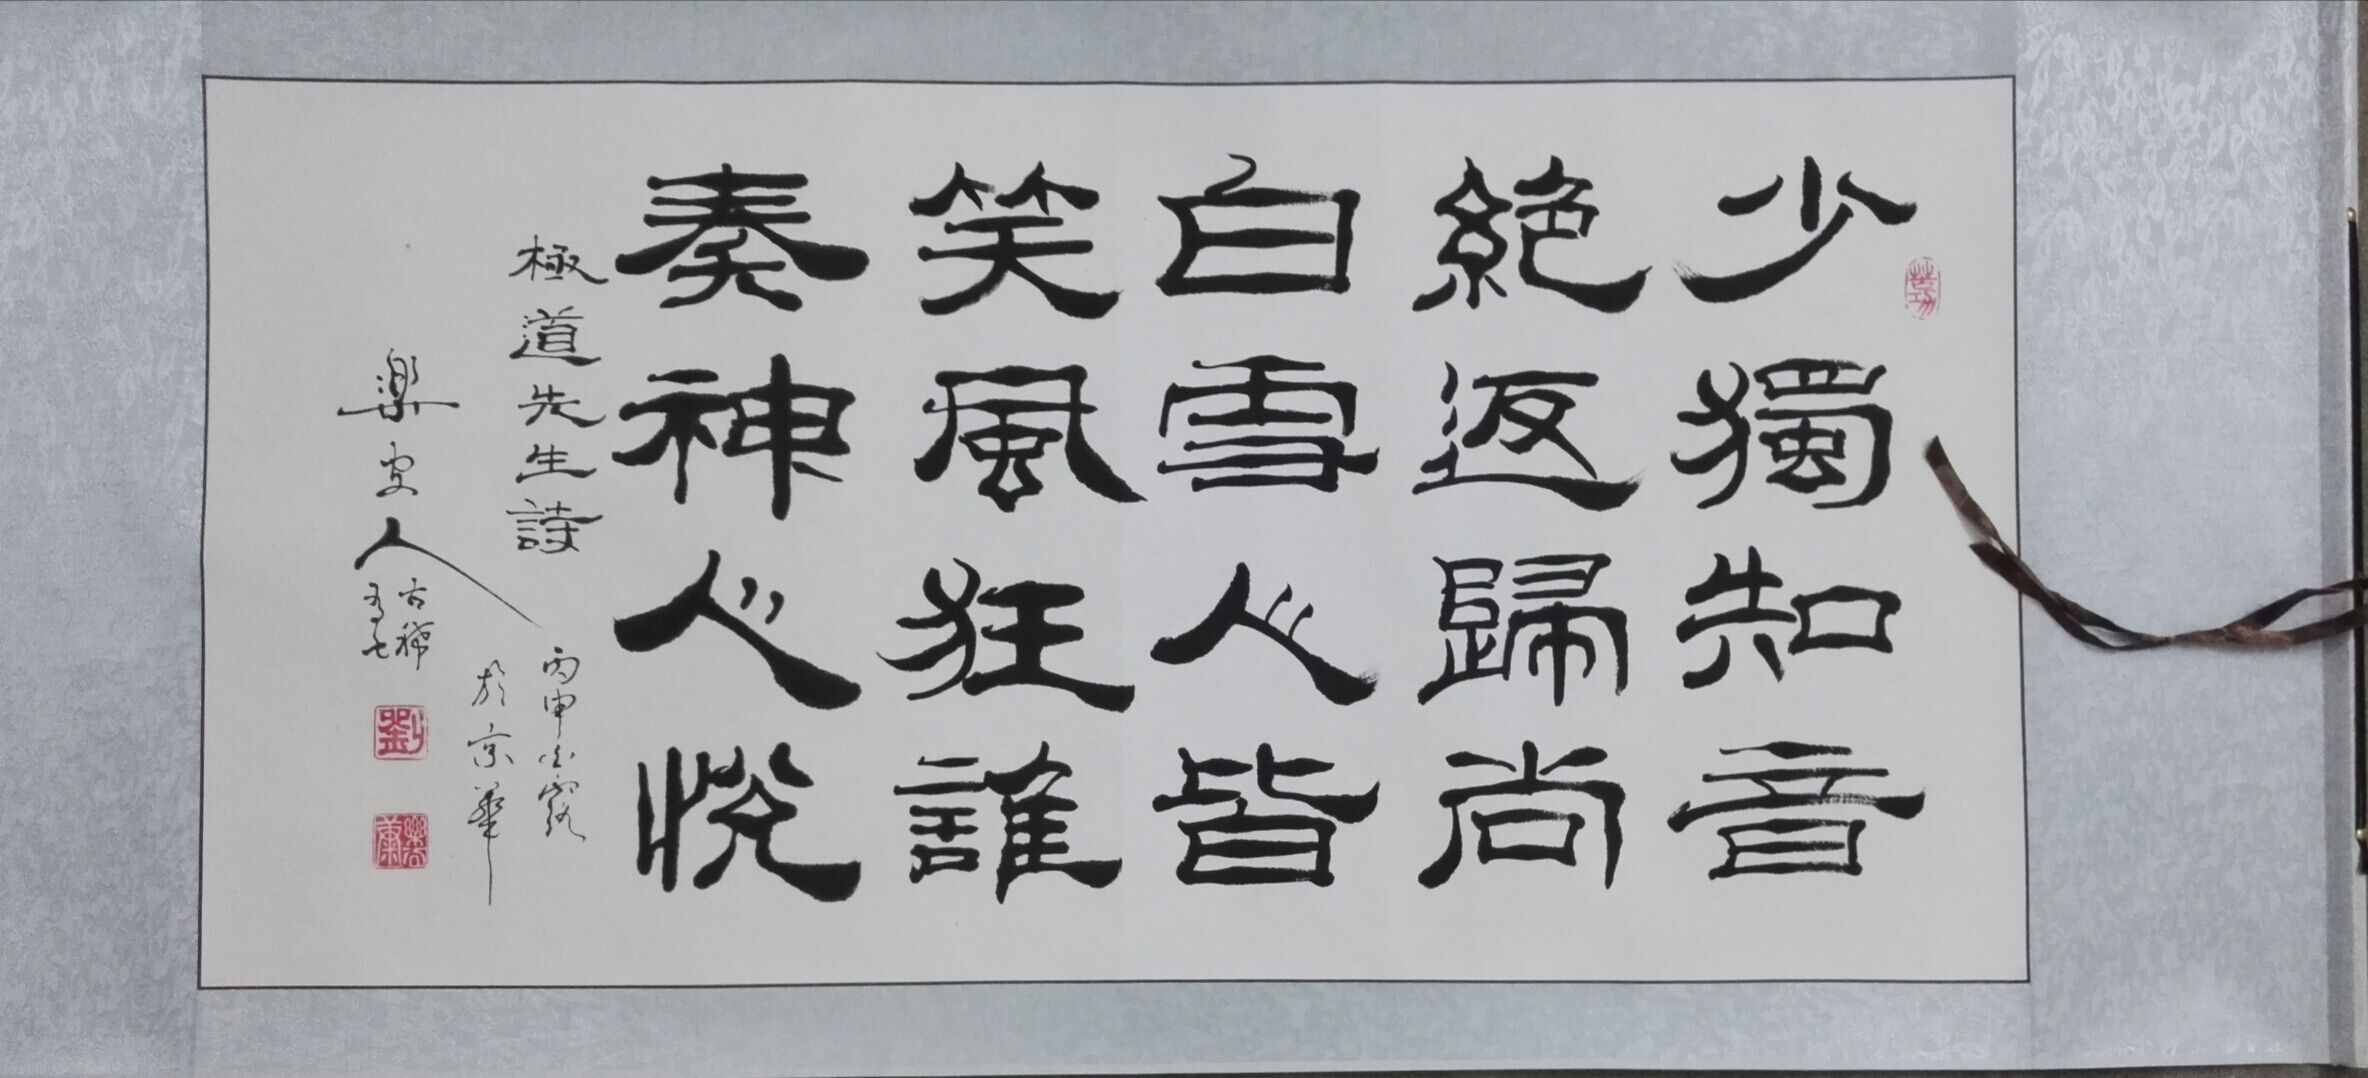 少獨知音
絕返歸尚
白雪人皆
笑風狂誰
奏神人悅
極道先生詩
丙申白露
於京華
樂安人
古稀
有七
劉